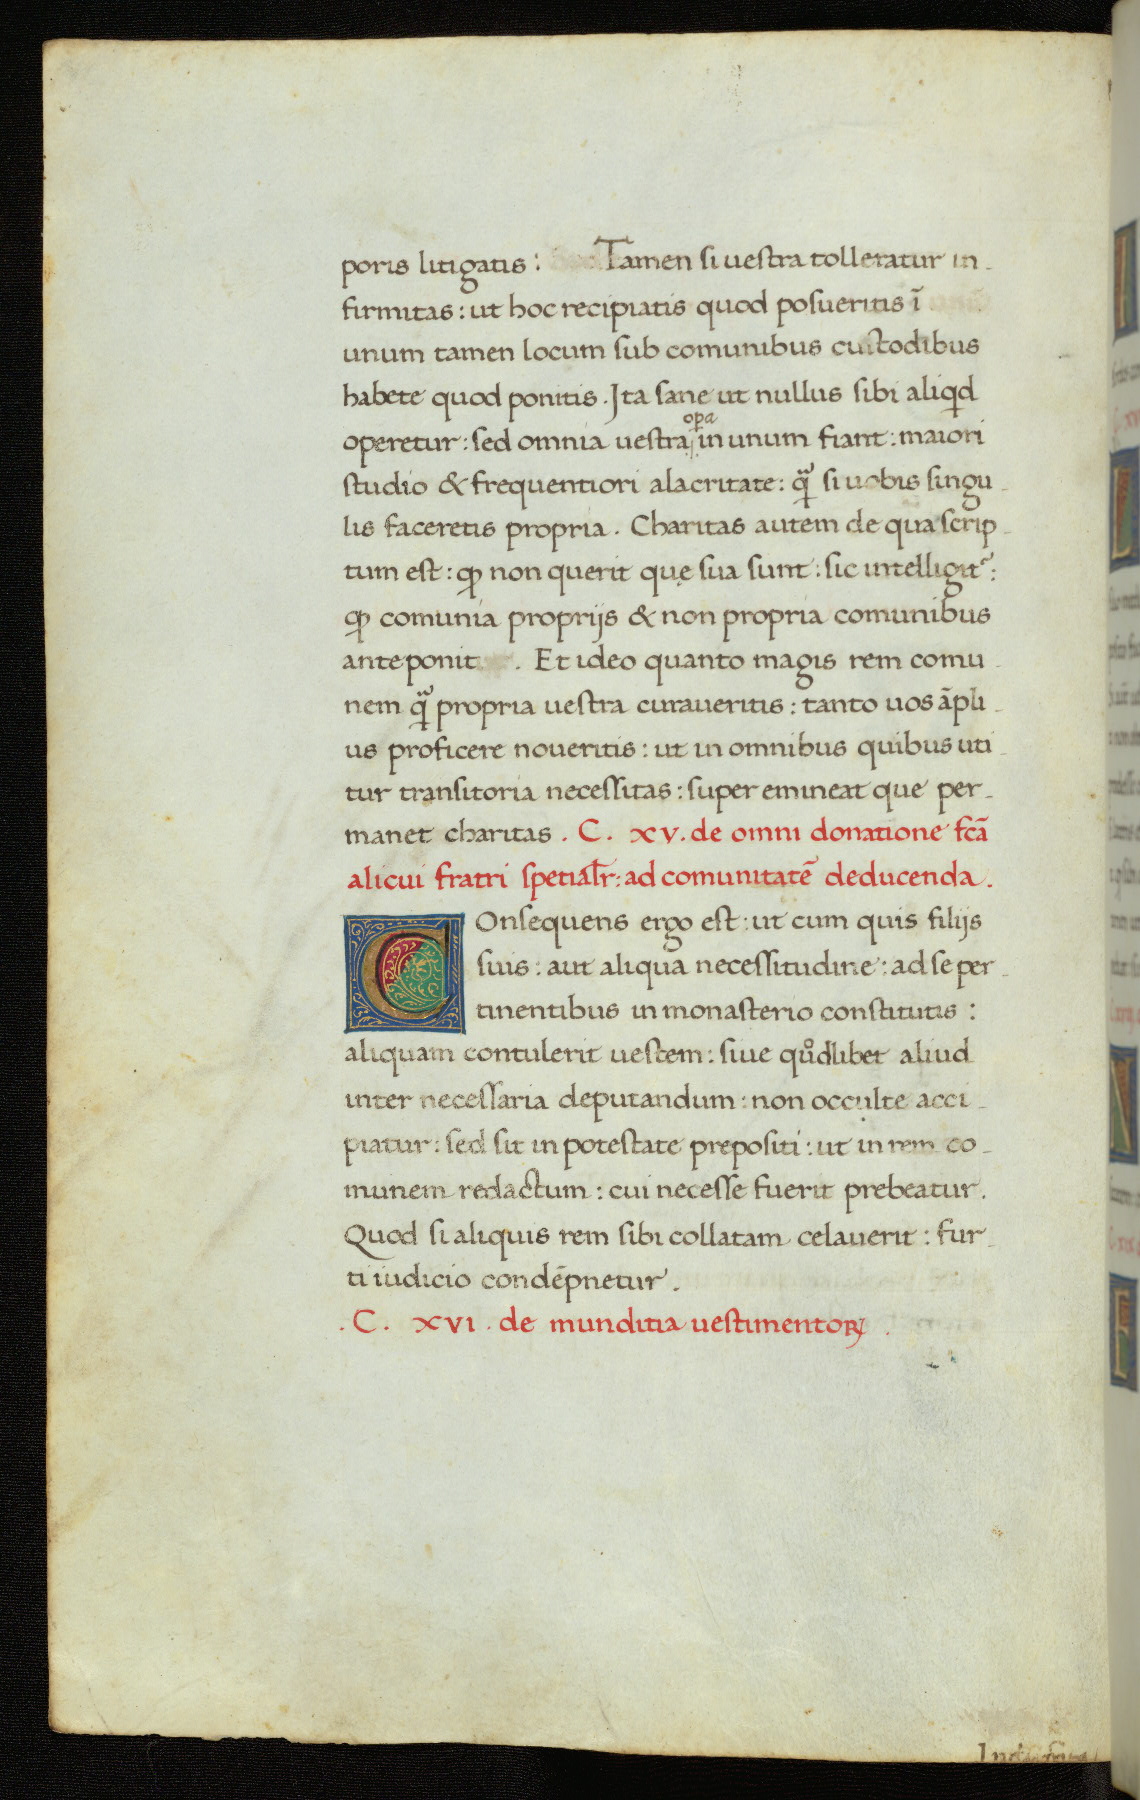 poris litigatis : Tamen si uestra tolleratur in-
firmitas : ut hoc recipiatis quod posueritis ī
unum tamen locum sub comunibus custodibus
habete quod ponitis . Ita sane ut nullus sibi aliqd
opa
operetur : sed omnia uestra in unum fiant : maiori
studio & frequentiori alacritate : qᷓ si uobis singu-
lis faceretis propria . Charitas autem de qua scrip-
tum est : ꝙ non querit quę sua sunt : sic intelligit᷑ :
ꝙ comunia proprijs & non propria comunibus
anteponit . Et ideo quanto magis rem comu-
nem qᷓ propria uestra curaueritis : tanto uos āpli-
us proficere noueritis : ut in omnibus quibus uti-
tur transitoria necessitas : super emineat que per-
manet charitas . C . xv . de omni donatione fcā
alicui fratri spetialr̄ : ad comunitatē deducenda .
COnsequens ergo est : ut cum quis filijs
suis : aut aliqua necessitudine : ad se per-
tinentibus in monasterio constitutis :
aliquam contulerit uestem : siue qͦdlibet aliud
inter necessaria deputandum : non occulte acci-
piatur : sed sit in potestate prepositi : ut in rem co-
munem redactum : cui necesse fuerit prebeatur .
Quod si aliquis rem sibi collatam celauerit : fur-
ti iudicio condēpnetur .
. C . xvi . de munditia uestimentoꝝ .